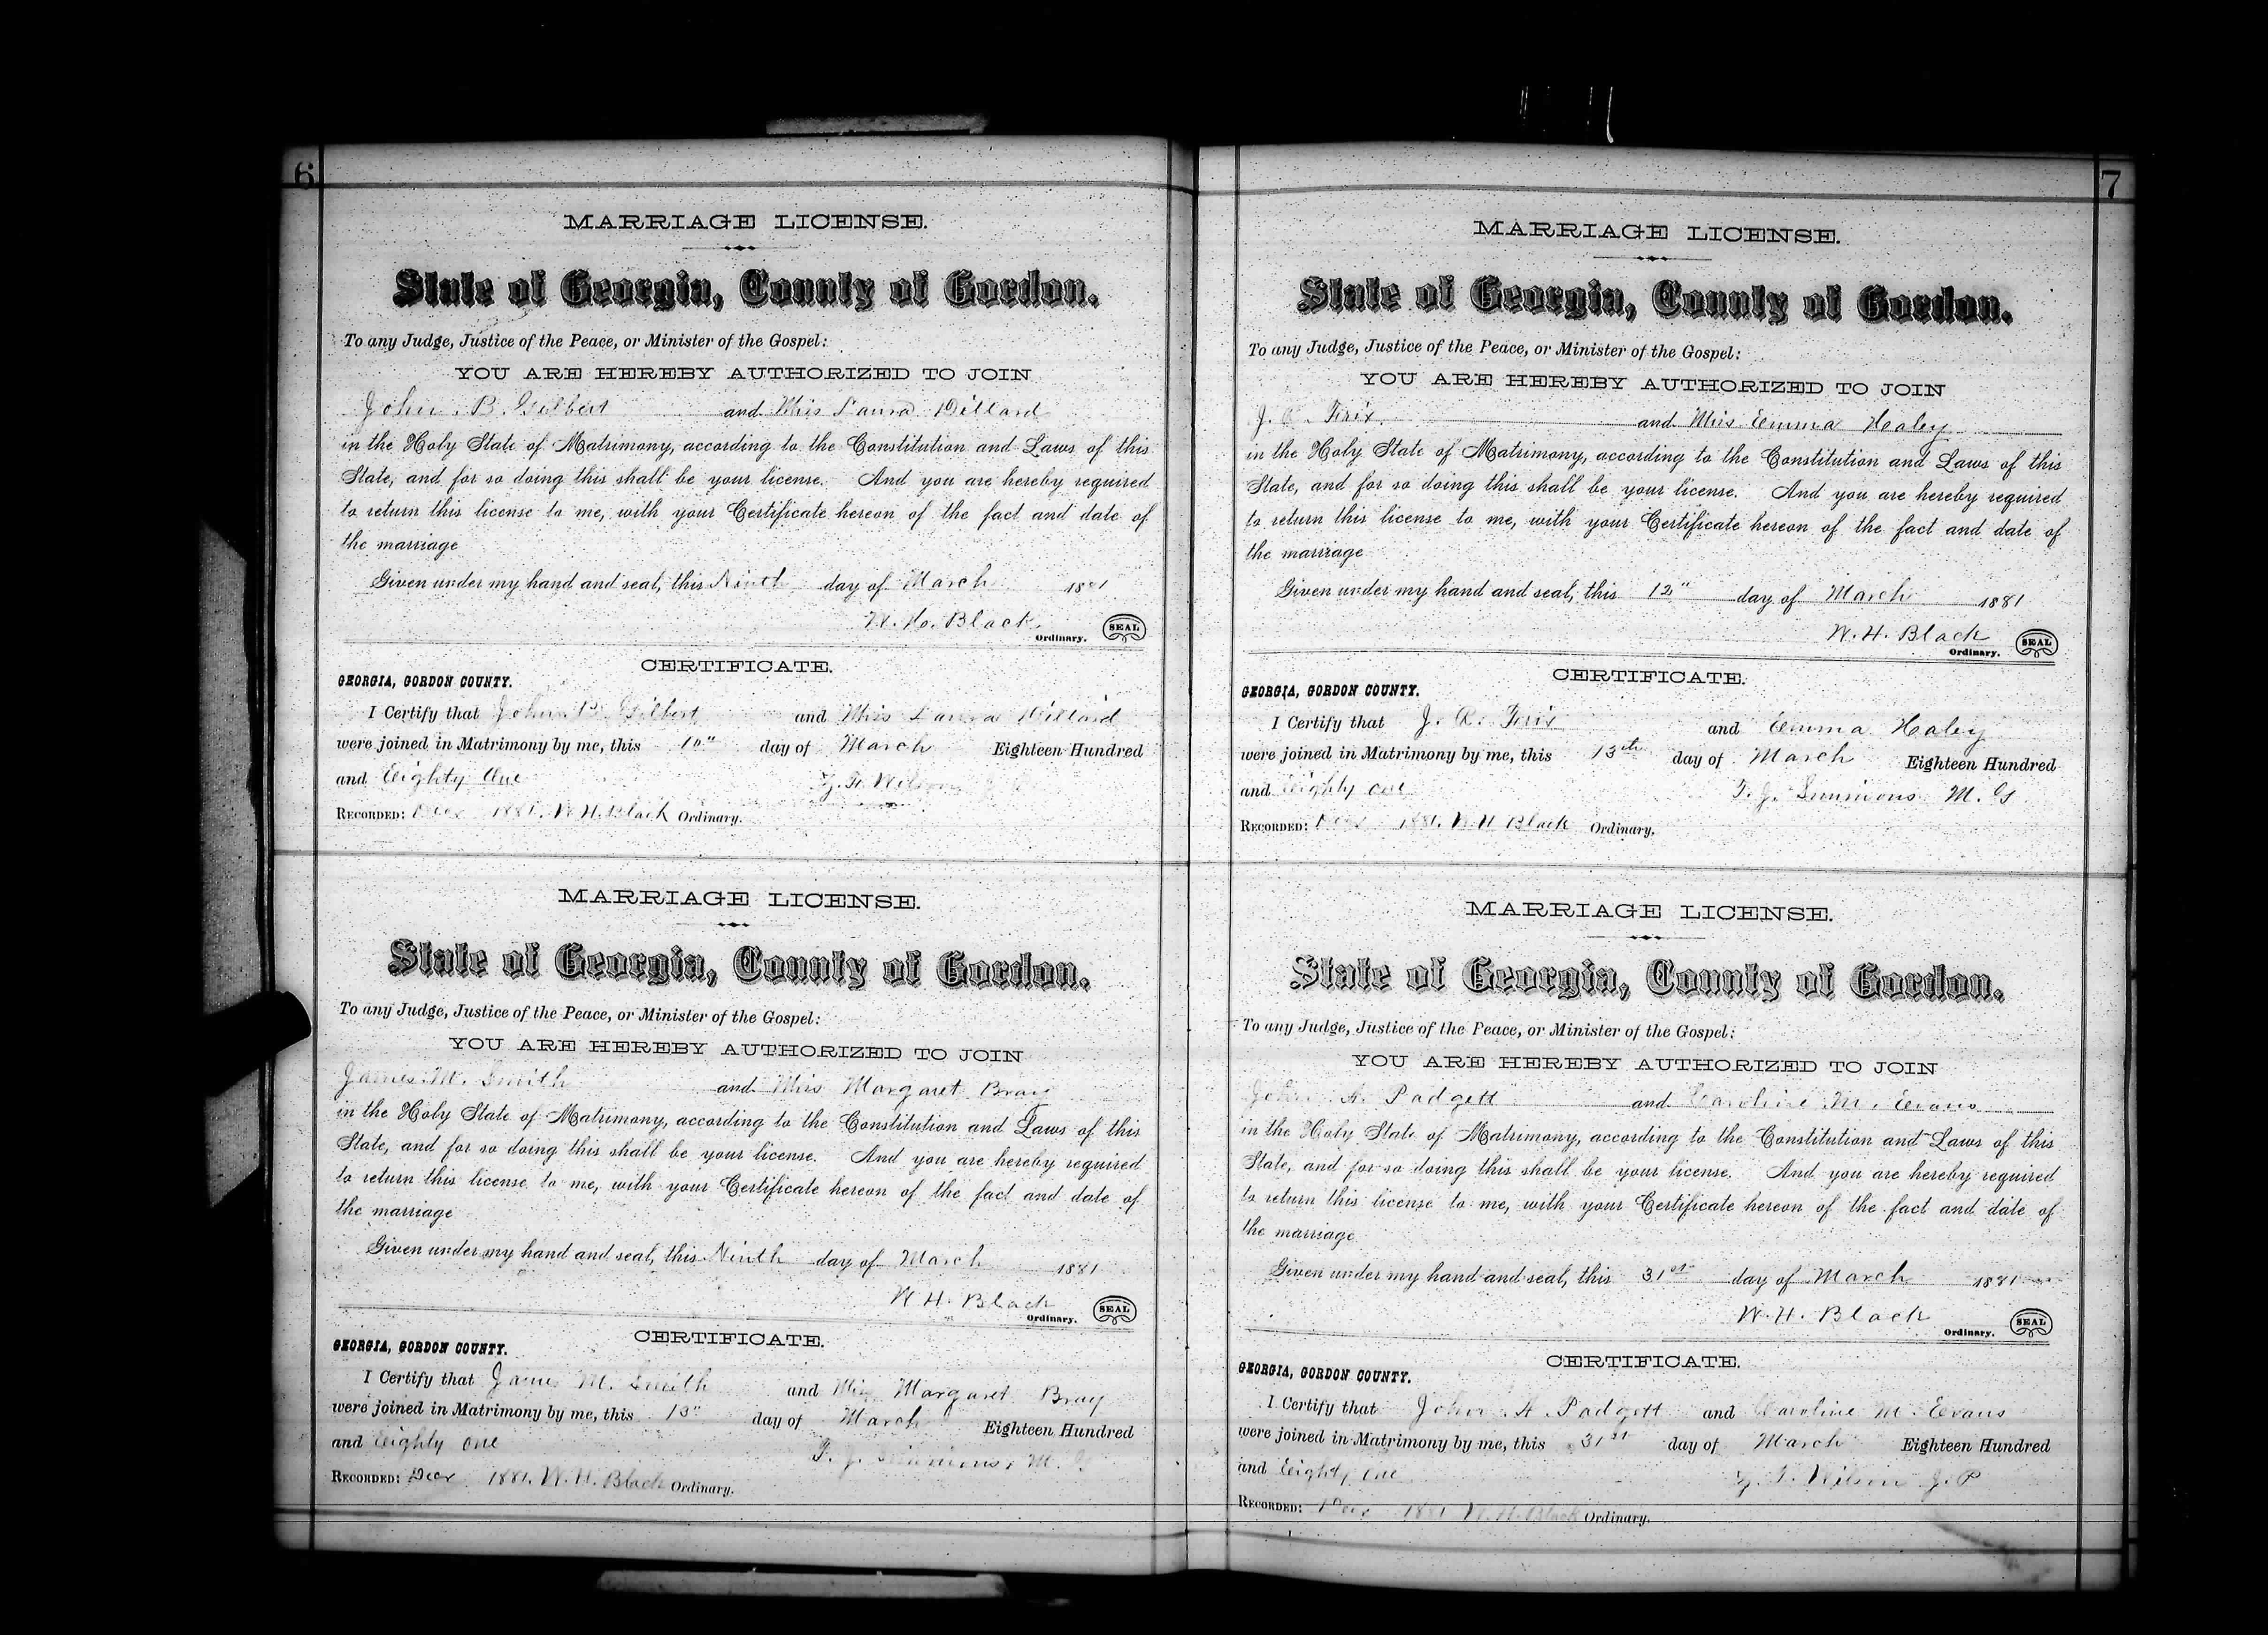 6
MARRIAGE LICENSE.
State of Georgia, County of Gordon.
To any Judge, Justice of the Peace, or Minister of the Gospel:
YOU ARE HEREBY AUTHORIZED TO JOIN
John B. Gilbert and Miss Laura Dillard
in the Holy State of Matrimony, according to the Constitution and Laws of this
State, and for so doing this shall be your license. And you are hereby required
to return this license to me, with your Certificate hereon of the fact and date of
the marriage
Given under my hand and seal, this Ninth day of March 1881
W. H. Black
Ordinary. SEAL
CERTIFICATE.
GEORGIA, GORDON COUNTY.
I Certify that John B. Gilbert and Miss Laura Dillard
were joined in Matrimony by me, this 10" day of March Eighteen Hundred
and Eighty One
Wilson
RECORDED: Decr 1881. W. H. Black Ordinary.
MARRIAGE LICENSE.
State of Georgia, County of Gordon.
To any Judge, Justice of the Peace, or Minister of the Gospel:
YOU ARE HEREBY AUTHORIZED TO JOIN
James M. Smith and Miss Margaret Bray
in the Holy State of Matrimony, according to the Constitution and Laws of this
State, and for so doing this shall be your license. And you are hereby required
to return this license to me, with your Certificate hereon of the fact and date of
the marriage
Given under my hand and seal, this Ninth day of March 1881
W. H. Black
Ordinary. SEAL
CERTIFICATE.
GEORGIA, GORDON COUNTY.
I Certify that James M. Smith and Miss Margaret Bray
were joined in Matrimony by me, this day of March Eighteen Hundred
and Eighty one
T. J. Simmons, M.
RECORDED: Decr 1881. W. H. Black Ordinary.
7
MARRIAGE LICENSE.
State of Georgia, County of Gordon.
To any Judge, Justice of the Peace, or Minister of the Gospel:
YOU ARE HEREBY AUTHORIZED TO JOIN
J. and Miss Emma Haley
in the Holy State of Matrimony, according to the Constitution and Laws of this
State, and for so doing this shall be your license. And you are hereby required
to return this license to me, with your Certificate hereon of the fact and date of
the marriage
Given under my hand and seal, this 12" day of March 1881
W. H. Black
Ordinary. SEAL
CERTIFICATE.
GEORGIA, GORDON COUNTY.
I Certify that J. R. and Emma Haley
were joined in Matrimony by me, this 13th day of March Eighteen Hundred
and Eighty one
T. J. Simmons M. G
RECORDED: Decr 1881. W. H. Black Ordinary.
MARRIAGE LICENSE.
State of Georgia, County of Gordon.
To any Judge, Justice of the Peace, or Minister of the Gospel:
YOU ARE HEREBY AUTHORIZED TO JOIN
John A. Padgett and Caroline M. Evans
in the Holy State of Matrimony, according to the Constitution and Laws of this
State, and for so doing this shall be your license. And you are hereby required
to return this license to me, with your Certificate hereon of the fact and date of
the marriage
Given under my hand and seal, this 31st day of March 1881
W. H. Black
Ordinary. SEAL
CERTIFICATE.
GEORGIA, GORDON COUNTY.
I Certify that John A. Padgett and Caroline M. Evans
were joined in Matrimony by me, this 31st day of March Eighteen Hundred
and Eighty one
Wilson J. P
RECORDED: Decr 1881 W. H. Black Ordinary.